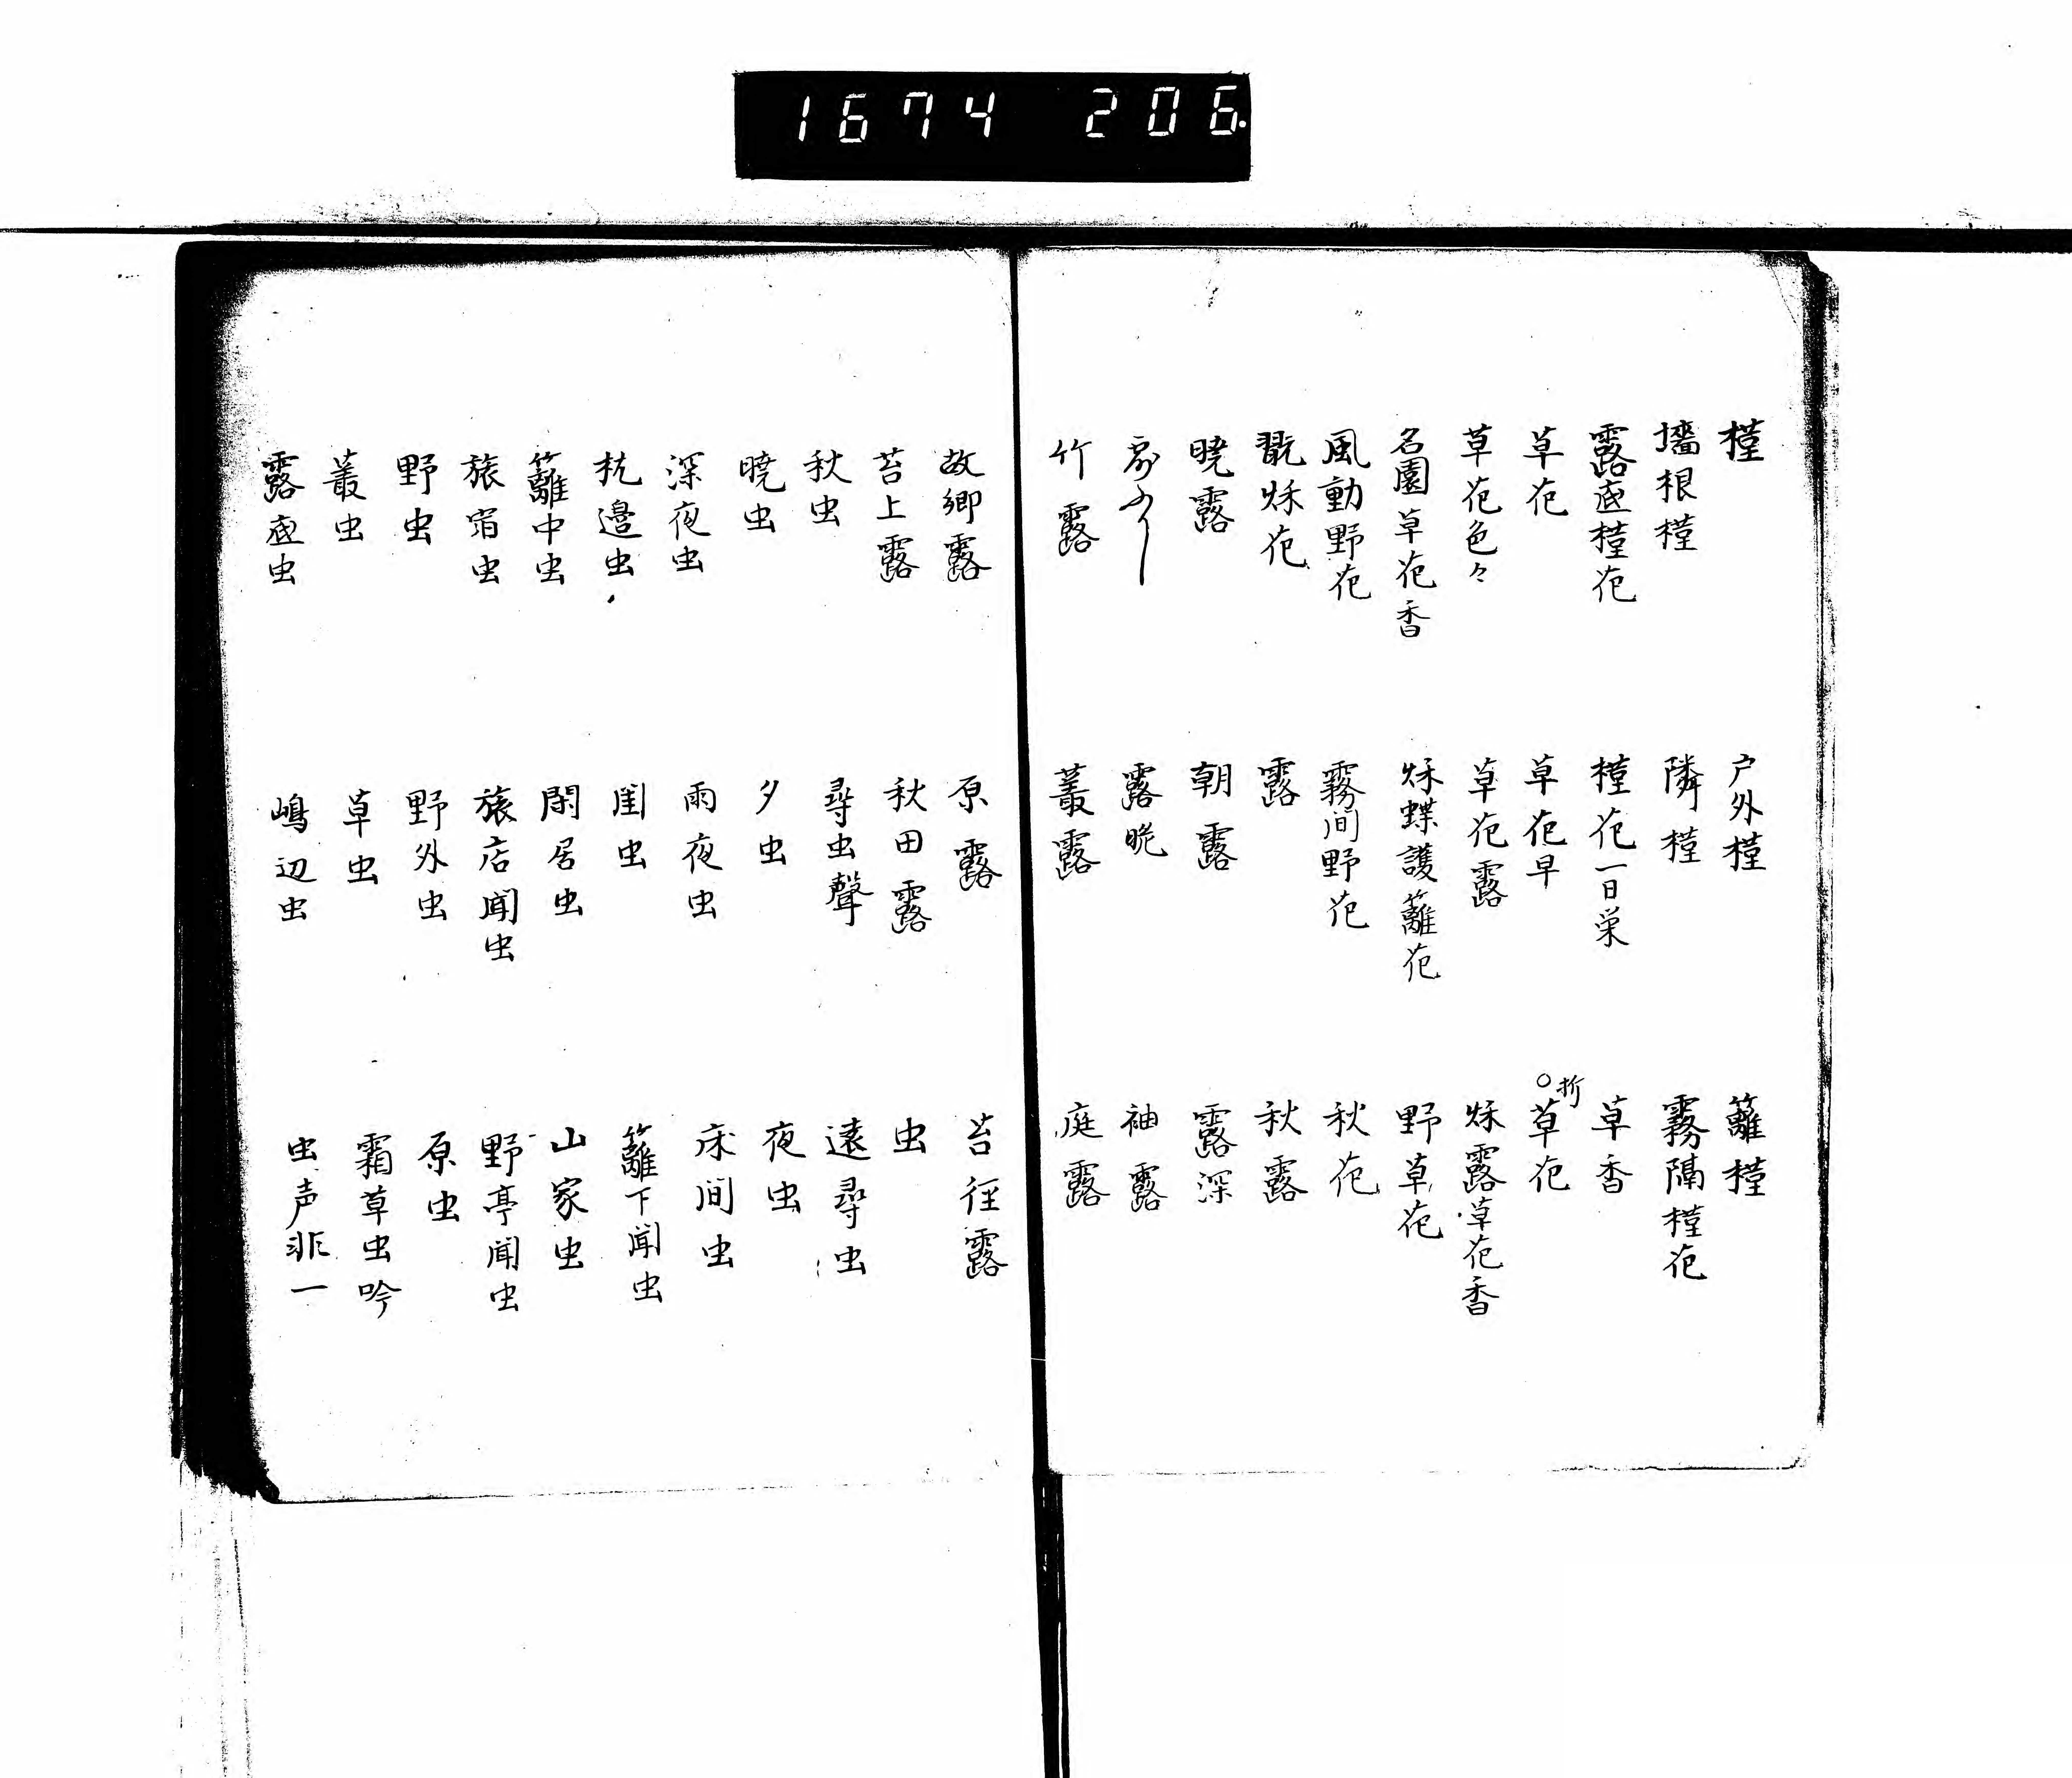 1674 206
槿 戸外槿 籬槿
墻根槿 隣槿 霧隔槿花
露底槿花 槿花一日栄 草香
草花 草花早 ○折草花
草花色々 草花露 秌露草花香
名園草花香 秌蝶護籬花 野草花
風動野花 霧間野花 秋花
翫秌花 露 秋露
暁露 朝露 露深
露晩 袖露
竹露 叢露 庭露
故郷露 原露 苔径露
苔上露 秋田露 虫
秋虫 尋虫聲 遠尋虫
暁虫 夕虫 夜虫
深夜虫 雨夜虫 床間虫
枕邊虫 閨虫 籬下聞虫
籬中虫 閑居虫 山家虫
旅宿虫 旅店聞虫 野亭聞虫
野虫 野外虫 原虫
叢虫 草虫 霜草虫吟
露底虫 嶋辺虫 虫声非一